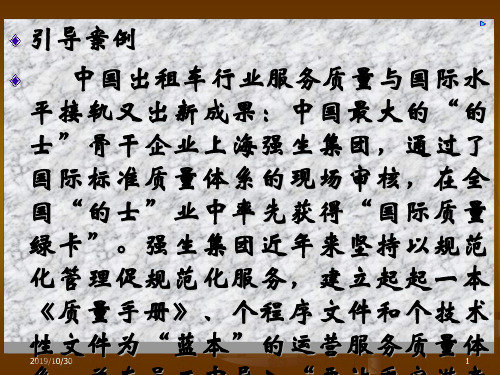 引导案例
中国出租车行业服务质量与国际水
平接轨又出新成果：中国最大的“的
士”骨干企业上海强生集团，通过了
国际标准质量体系的现场审核，在全
国“的士”业中率先获得“国际质量
绿卡”。强生集团近年来坚持以规范
化管理促规范化服务，建立起起一本
《质量手册》、个程序文件和个技术
性文件为“蓝本”的运营服务质量体
2019/10/30
1